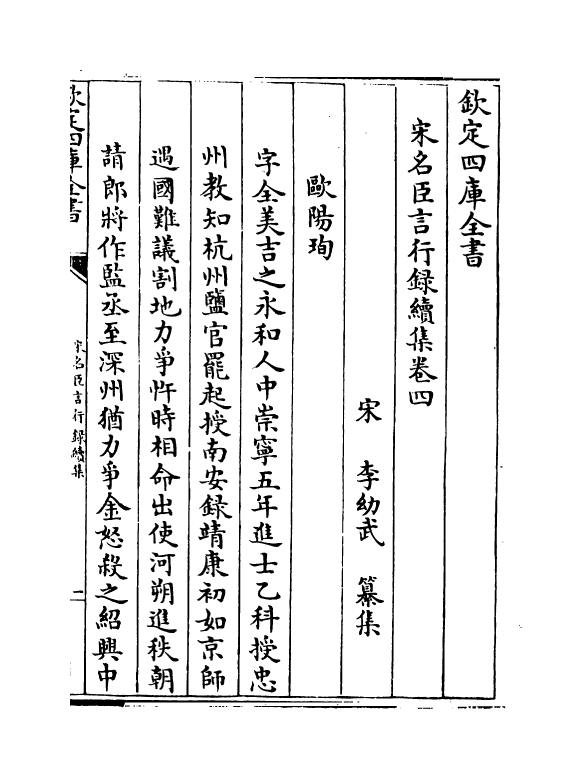 欽定四庫全書
宋名臣言行録續集卷四
宋 李幼武 纂集
歐陽珣
字全美吉之永和人中崇寧五年進士乙科授忠
州教知杭州鹽官罷起授南安録靖康初如京師
遇國難議割地力爭忤時相命出使河朔進秩朝
請郎將作監丞至深州猶力爭金怒殺之紹興中
欽定四庫全書
宋名臣言行録續集